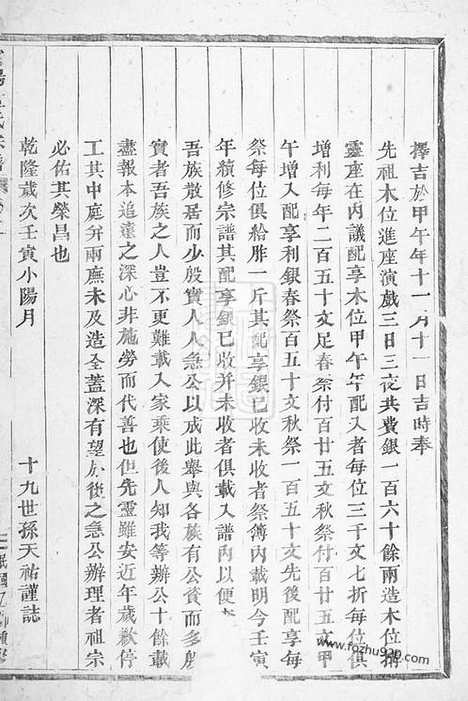 擇吉於甲午年十一月十一日吉時奉
先祖木位進座演戲三日三夜共費銀一百六十餘兩造木位捐
靈座在內議配享木位甲午年配入者每位三千文七折每位俱
增利每年二百五十文足春祭付百廿五文秋祭付百廿五文甲
午增入配享利銀春祭百五十文秋祭一百五十文先後配享每
祭每位俱給胙一斤其配享銀已收未收者祭簿內載明今壬寅
年續修宗譜其配享銀已收并未收者俱載入譜內以便
吾族散居而少殷實人人急公以成此舉與各族有公賞而多殷
實者吾族之人豈不更難載入家乘使後人知我等辦公十餘載
盡報本追遠之深心非施勞而代善也但先靈雖安近年歲歉停
工其中庭弁兩廡未及造全蓋深有望於後之急公辦理者祖宗
必佑其榮昌也
乾隆歲次壬寅小陽月
十九世孫天祐謹誌
www.fozhu920.com